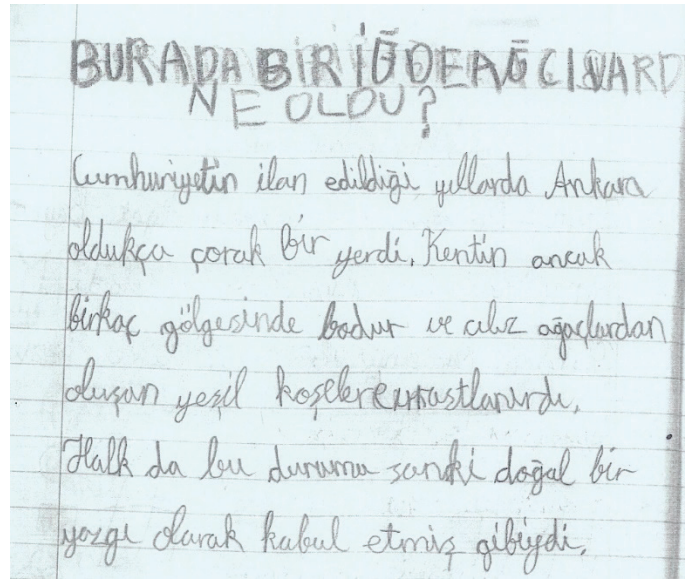 BURADA BİR İĞDE AĞCI VARD
NE OLDU?
Cumhuriyetin ilan edildiği yıllarda Ankara
oldukça çorak bir yerdi. Kentin ancak
birkaç gölgesinde bodur ve cılız ağaçlardan
oluşan yeşil koşelere rastlanırdı.
Halk da bu durumu sanki doğal bir
yazgı olarak kabul etmiş gibiydi.